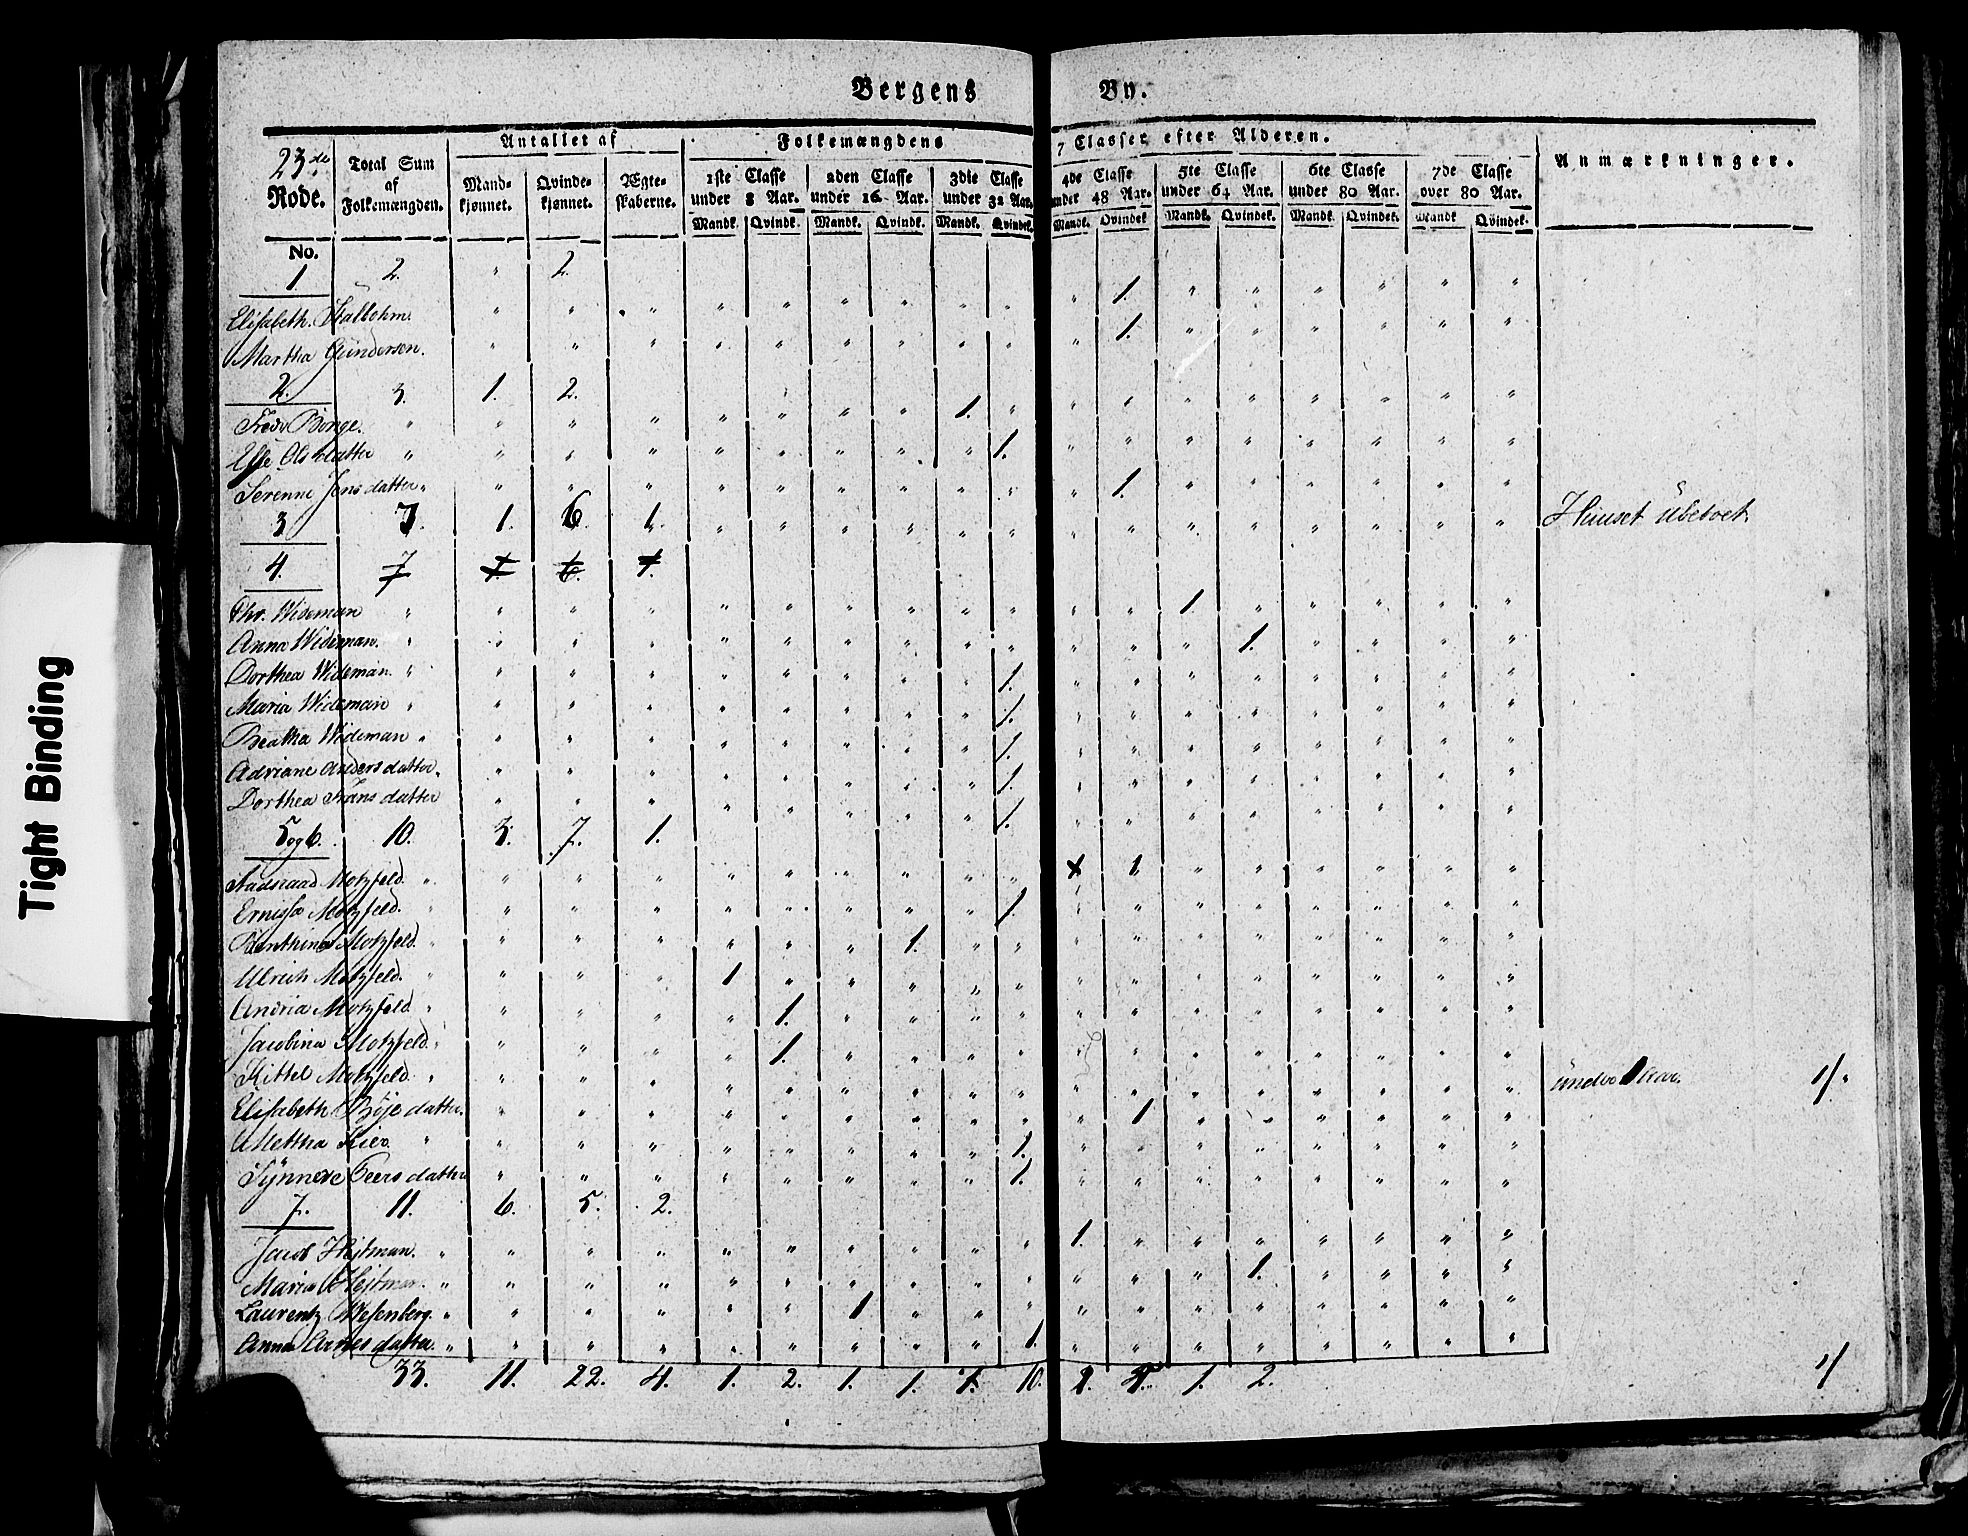 Bergens By.
23de Rode. Total Sum af Folkemængden. Antallet af Mandkjønnet. Qvindekjønnet. Ægteskaberne. Folkemængdens 7 Classer efter Alderen. Anmærkninger.
1ste Classe under 8 Aar. 2den Classe under 16 Aar. 3die Classe under 32 Aar. 4de Classe under 48 Aar. 5te Classe under 64 Aar. 6te Classe under 80 Aar. 7de Classe over 80 Aar.
Mandk. Qvindk. Mandk. Qvindk. Mandk. Qvindek. Mandk. Qvindek. Mandk. Qvindek. Mandk. Qvindek. Mandk. Qvindek.
No.
1 2. " 2.
Elisabeth 1.
Martha Gundersen. 1.
2. 3. 1. 2.
Fredr Borge. 1.
Else Olsdatter 1.
Serenne Jensdatter 1.
3 7. 1. 6. 1. Huuset ubeboet
4. 7 1. 6. 1.
Chr. Wideman 1.
Anna Wideman. 1.
Dorthea Wideman. 1.
Maria Wideman 1.
Beatha Wideman 1.
Adriane Andersdatter 1.
Dorthea Fransdatter 1.
5 og 6. 10. 3. 7. 1.
Motzfeld. 1
Ernissa Motzfeld. 1.
Benthine Motzfeld 1.
Ulrich Motzfeld. 1
Andria Motzfeld 1.
Jacobina Motzfeld. 1.
Kittel Motzfeld. under 1 Aar. 1/
Elisabeth Böjedatter. 1
Mettha 1.
Synneve Peersdatter 1.
7. 11. 6. 5. 2.
Jacob Hejtman. 1.
Maria Hejtman. 1.
Laurentz Wesenberg. 1
Anna Larsdatter. 1
33. 11. 22. 4. 1. 2. 1. 1. 1. 10. 2. 1. 2. 1/
Tight Binding